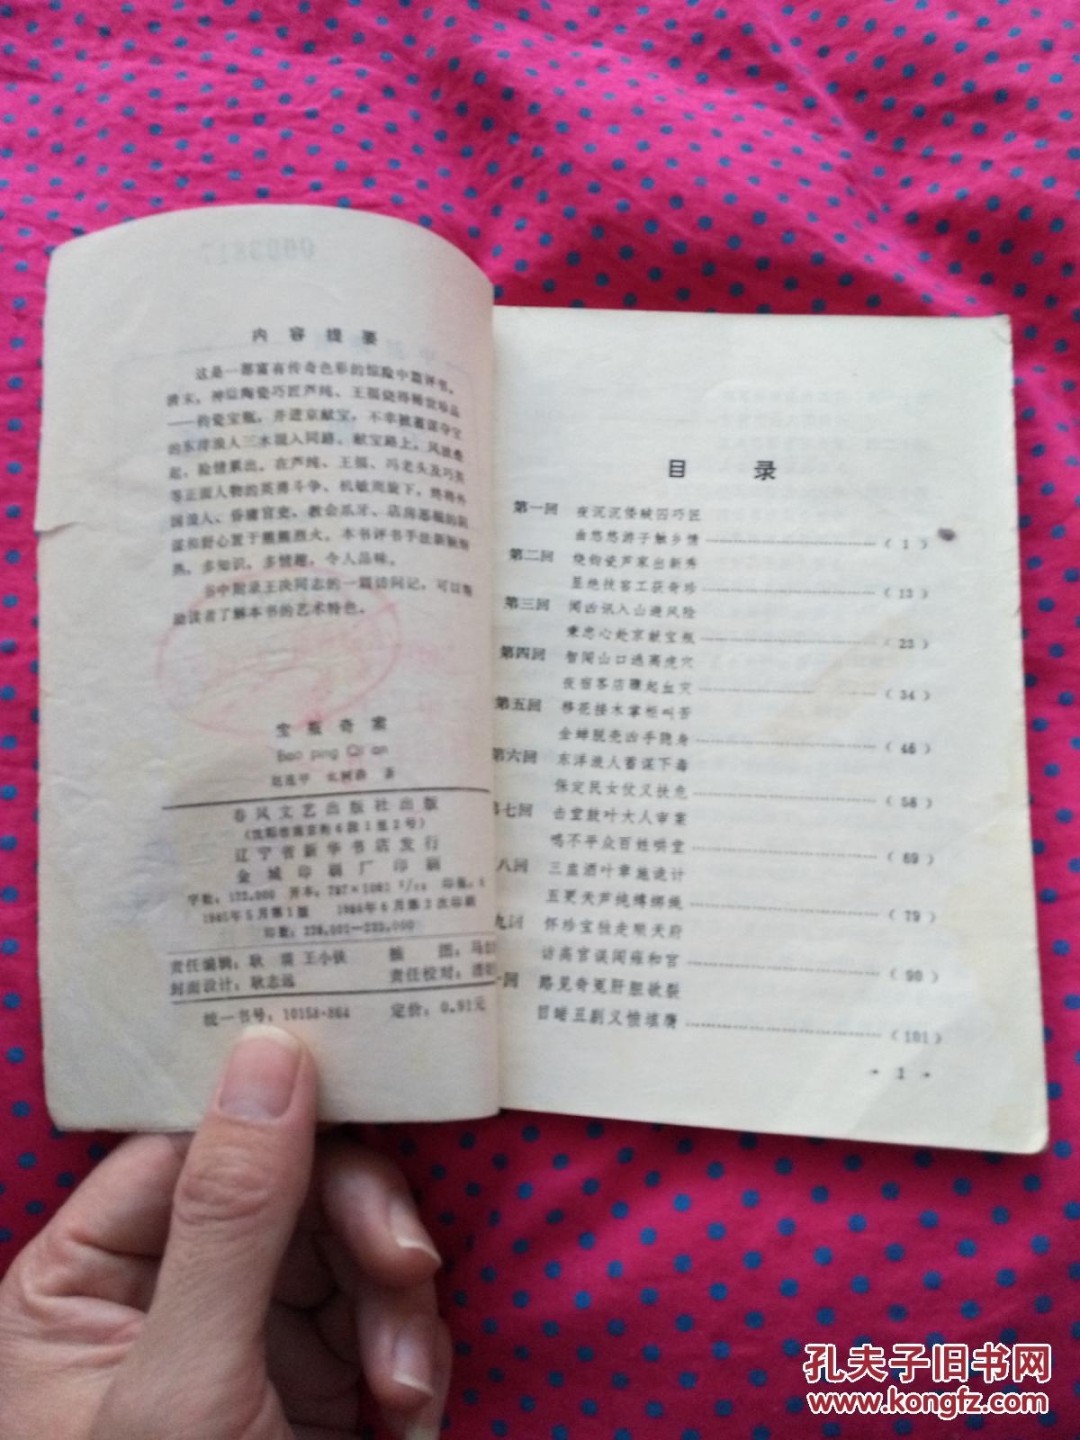 内容提要
这是一部富有传奇色彩的惊险中篇评书。
清末，神垕陶瓷巧匠芦纯、王福烧得稀世珍品
——钧瓷宝瓶，并进京献宝，不幸被蓄谋夺宝
的东洋浪人三木混入同路。献宝路上，风波叠
起，险情累出。在芦纯、王福、冯老头及巧英
等正面人物的英勇斗争、机敏周旋下，终将外
国浪人、昏庸官吏、教会爪牙、店房恶棍的阴
谋和野心置于熊熊烈火。本书评书手法新颖
热，多知识，多情趣，令人品味。
书中附录王决同志的一篇访问记，可以帮
助读者了解本书的艺术特色。
宝瓶奇案
Bao ping Qi an
著
春风文艺出版社出版
（沈阳市南京街6段1里2号）
辽宁省新华书店发行
金城印刷厂印刷
字数：172,000 开本：787×1092 1/32 印张：
1985年5月第1版 1986年6月第2次印刷
印数：
责任编辑：耿瑛 王小铁 插图：马
封面设计：耿志远 责任校对：潘
统一书号：10158·864 定价：0.91元
目录
第一回 夜沉沉倭贼囚巧匠
曲悠悠游子触乡情 （1）
第二回 烧钧瓷芦家出新秀
显绝技窑工获奇珍 （13）
第三回 闻凶讯入山避风险
秉忠心赴京献宝瓶 （23）
第四回 智闯山口逃离虎穴
夜宿客店骤起血灾 （34）
第五回 移花接木掌柜叫苦
金蝉脱壳凶手隐身 （46）
第六回 东洋浪人蓄谋下毒
保定民女仗义扶危 （58）
第七回 击堂鼓叶大人审案
鸣不平众百姓哄堂 （69）
八回 三盅酒叶章施诡计
五更天芦纯缚绑绳 （79）
九回 怀珍宝独走顺天府
访高官误闯雍和宫 （90）
回 路见奇冤肝胆欲裂
目睹丑剧义愤填膺 （101）
· 1 ·
孔夫子旧书网
www.kongfz.com